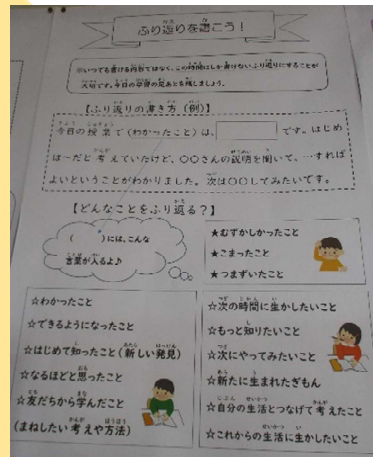 ふり返りを書こう！
※いつでも書ける内容ではなく、この時間にしか書けないふり返りにすることが
大切です。今日の学習の足あとを残しましょう。
【ふり返りの書き方（例）】
今日の授業で（わかったこと）は、 です。はじめ
は〜だと考えていたけど、〇〇さんの説明を聞いて、〜すれば
よいということがわかりました。次は〇〇してみたいです。
【どんなことをふり返る？】
（　　）には、こんな
言葉が入るよ♪
★むずかしかったこと
★こまったこと
★つまずいたこと
☆わかったこと
☆できるようになったこと
☆はじめて知ったこと（新しい発見）
☆なるほどと思ったこと
☆友だちから学んだこと
（まねしたい考えや方法）
☆次の時間に生かしたいこと
☆もっと知りたいこと
☆次にやってみたいこと
☆新たに生まれたぎもん
☆自分の生活とつなげて考えたこと
☆これからの生活に生かしたいこと